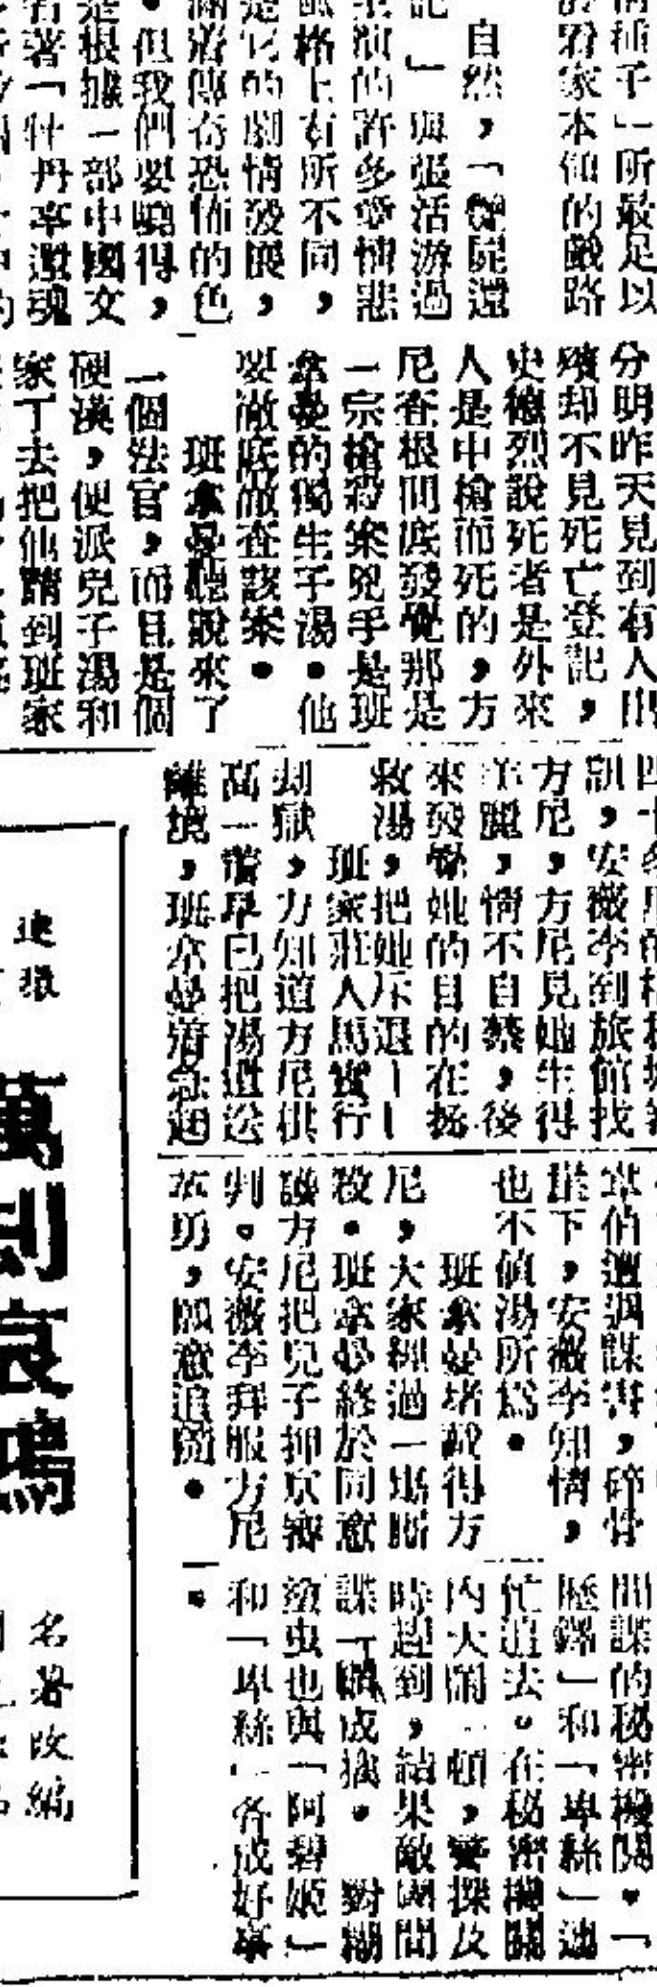 情種子」所最足以
於看家本領的戲路
自然,「艷屍還
記」與張活游過
主演的許多愛情悲
風格上有所不同,
是它的劇情發展,
滿着傳奇恐怖的色
但我們要曉得,
是根據一部中國文
名著「牡丹亭還魂
分明昨天見到有人出
殯却不見死亡登記,
史德烈說死者是外來
人是中槍而死的,方
尼查根問底發覺那是
一宗槍殺案兇手是班
拿曼的獨生子湯。他
要澈底澈查該案。
班拿曼聽說來了
一個法官,而且是個
硬漢,便派兒子湯和
家丁去把他請到班家
訊,安薇李到旅館找
方尼,方尼見她生得
美麗,情不自禁,後
來發覺她的目的在拯
救湯,把她斥退——
班家莊人馬實行
刧獄,方知道方尼棋
高一著早已把湯遣送
離境,班拿曼着急起
韋伯遭湯謀害,碎骨
崖下,安薇李知情,
也不值湯所為。
班拿曼堵截得方
尼,大家經過一場廝
殺。班拿曼終於同意
讓方尼把兒子押京審
判。安薇李拜服方尼
英勇,願意追隨。
間諜的秘密機關。「
歷鐸」和「卑絲」連
忙追去。在秘密機關
內大鬧一頓,警探及
時趕到,結果敵國間
諜一購成擒。對糊
塗虫也與「阿碧姬」
和「卑絲」各成好事
。
連環
萬刦哀鴻
名著改編